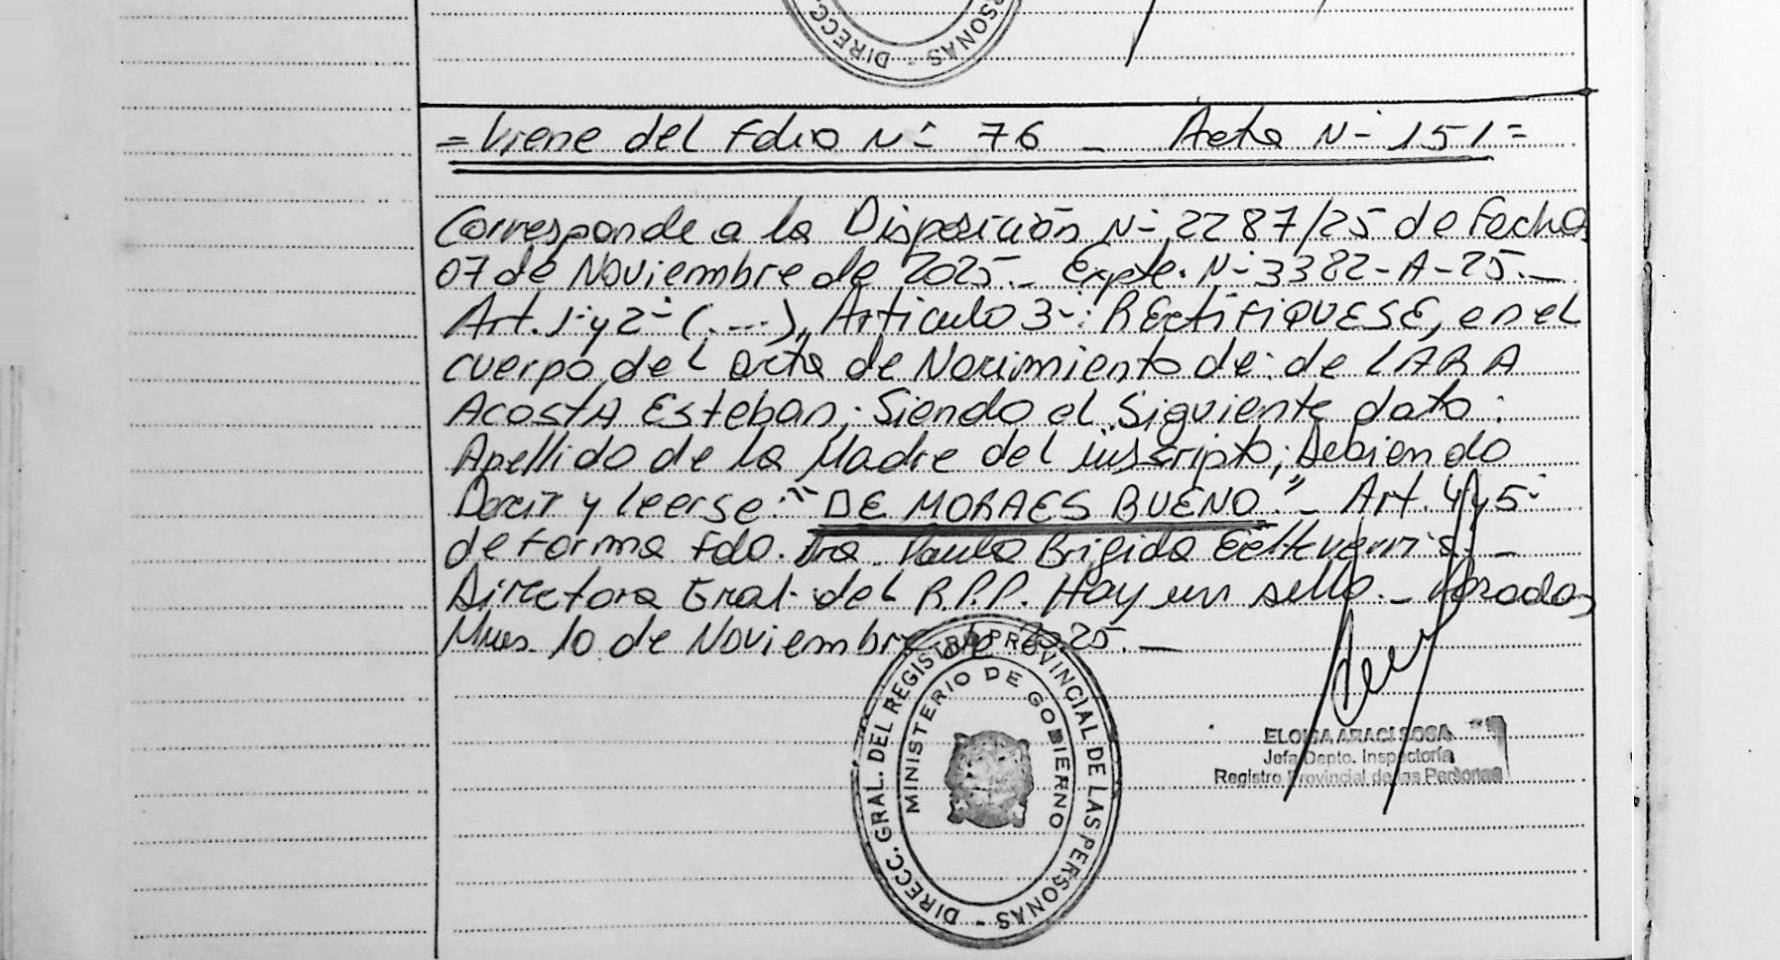 DIRECC. PERSONAS -
= Viene del Folio N- 76 - Acta N- 151 =
Corresponde a la Disposición N- 2287/25 de Fecha
07 de Noviembre de 2025.- Expte. N- 3382-A-25.-
Art. 1- y 2- (.---), Articulo 3-: RECTIFIQUESE, en el
cuerpo del acta de Nacimiento de: de LARA
ACOSTA Esteban; Siendo el Siguiente dato:
Apellido de la Madre del inscripto; Debiendo
Decir y leerse: "DE MORAES BUENO". - Art. 4 y 5-
de forma Fdo. Dra. Paula Brigida
Directora Gral. del R.P.P. Hay un sello. - Posadas
Mnes. 10 de Noviembre de 2025. -
DIRECC. GRAL. DEL REGISTRO PROVINCIAL DE LAS PERSONAS -
MINISTERIO DE GOBIERNO
ELOISA ARACI SOSA
Jefa Depto. Inspectoría
Registro Provincial de las Personas